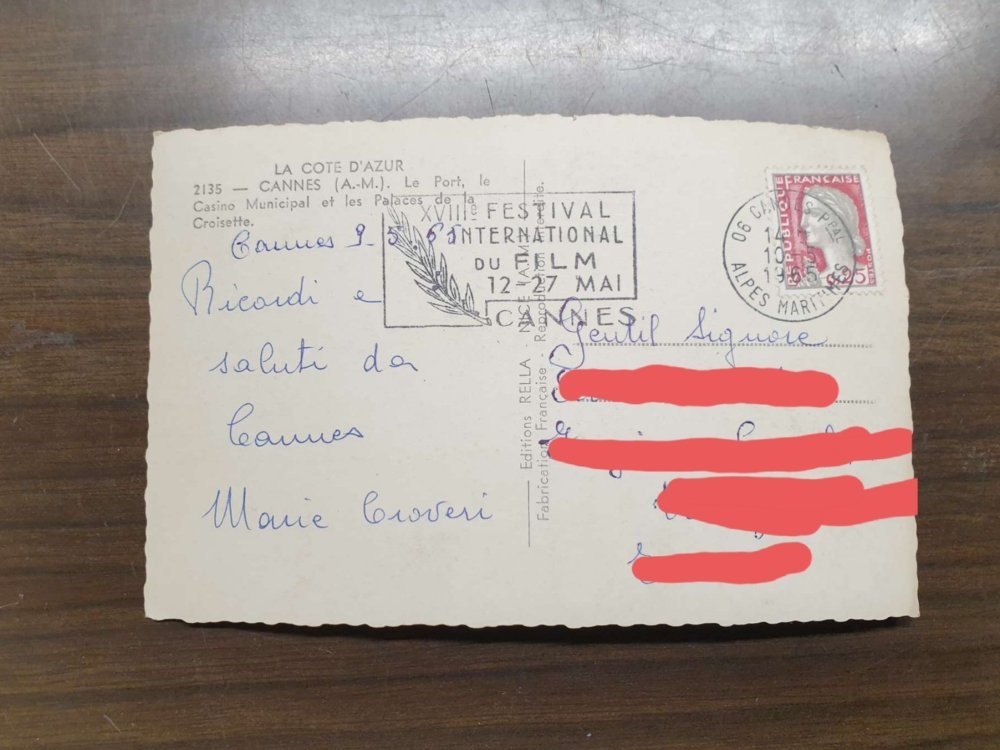 LA COTE D'AZUR
2135 — CANNES (A.-M.). Le Port, le
Casino Municipal et les Palaces de la
Croisette.
Cannes 9-5-65
Ricordi e
saluti da
Cannes
Marie Croveri
XVIIIe FESTIVAL
INTERNATIONAL
DU FILM
12-27 MAI
CANNES
Editions RELLA - NICE (A.-M.)
Fabrication Française - Reproduction Interdite.
REPUBLIQUE FRANÇAISE
0,25
06 CANNES PPAL
14
10
1965
ALPES MARITIMES
Gentil Signore